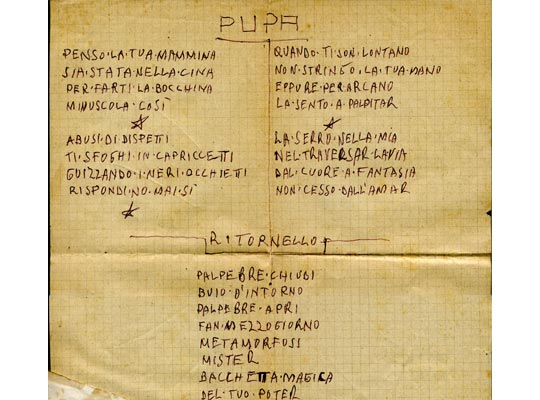 PUPA
PENSO·LA·TUA·MAMMINA
SIA·STATA·NELLA·CINA
PER·FARTI·LA·BOCCHINA
MINUSCOLA·COSÌ
ABUSI·DI·DISPETTI
TI·SFOGHI·IN·CAPRICCETTI
GUIZZANDO·I·NERI·OCCHIETTI
RISPONDI·NO·MAI·SÌ
QUANDO·TI·SON·LONTANO
NON·STRINGO·LA·TUA·MANO
EPPURE·PER·ARCANO
LA·SENTO·A·PALPITAR
LA·SERRO·NELLA·MIA
NEL·TRAVERSAR·LA·VIA
DAL·CUORE·A·FANTASIA
NON·CESSO·DALL'AMAR
RITORNELLO
PALPEBRE·CHIUDI
BUIO·D'INTORNO
PALPEBRE·APRI
FAN·MEZZOGIORNO
METAMORFOSI
MISTER
BACCHETTA·MAGICA
DEL·TUO·POTER